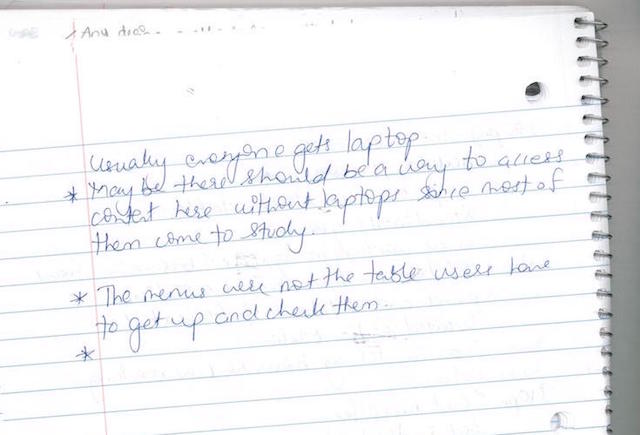 usually everyone gets laptop.
* May be there should be a way to access
content here without laptops since most of
them come to study.
* The menus were not the table users have
to get up and check them.
*